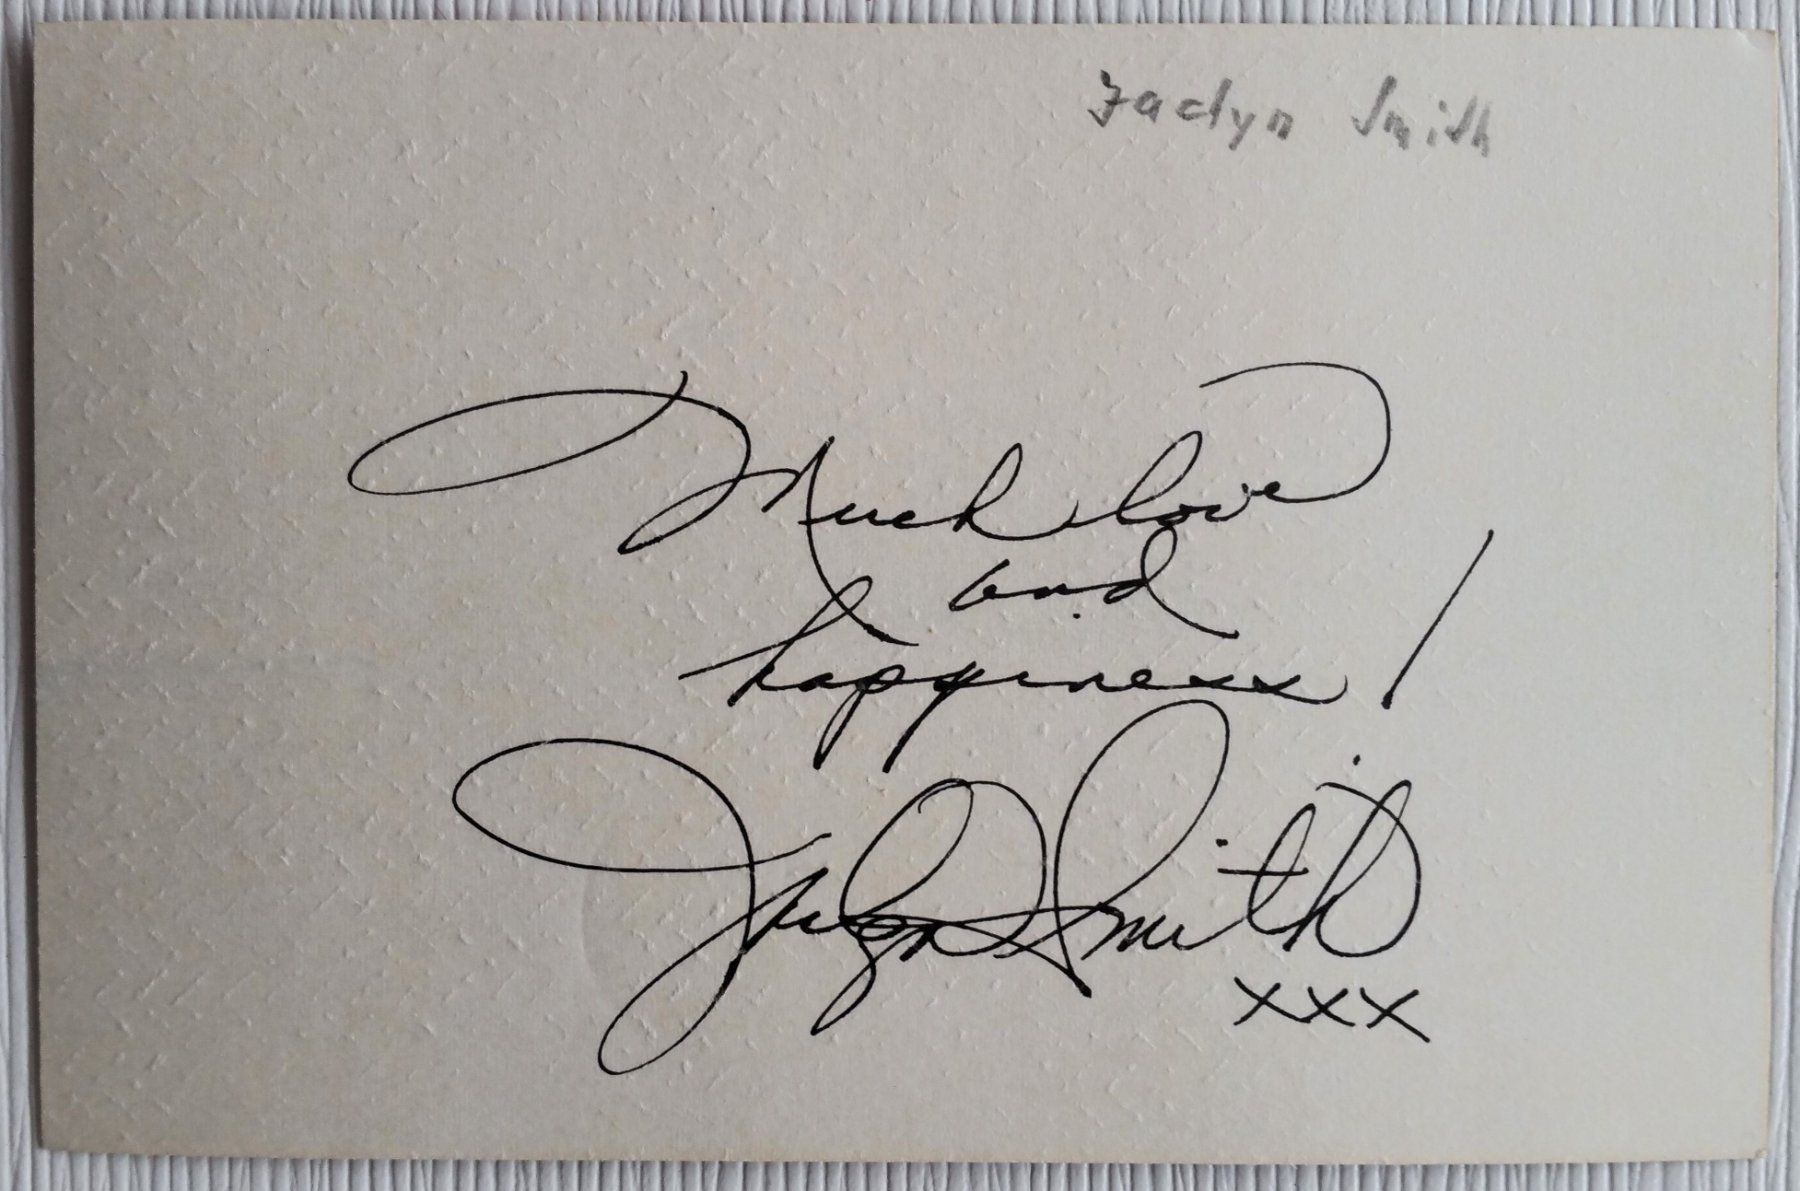 Jaclyn Smith
Much love
and
happiness!
Jaclyn Smith
xxx